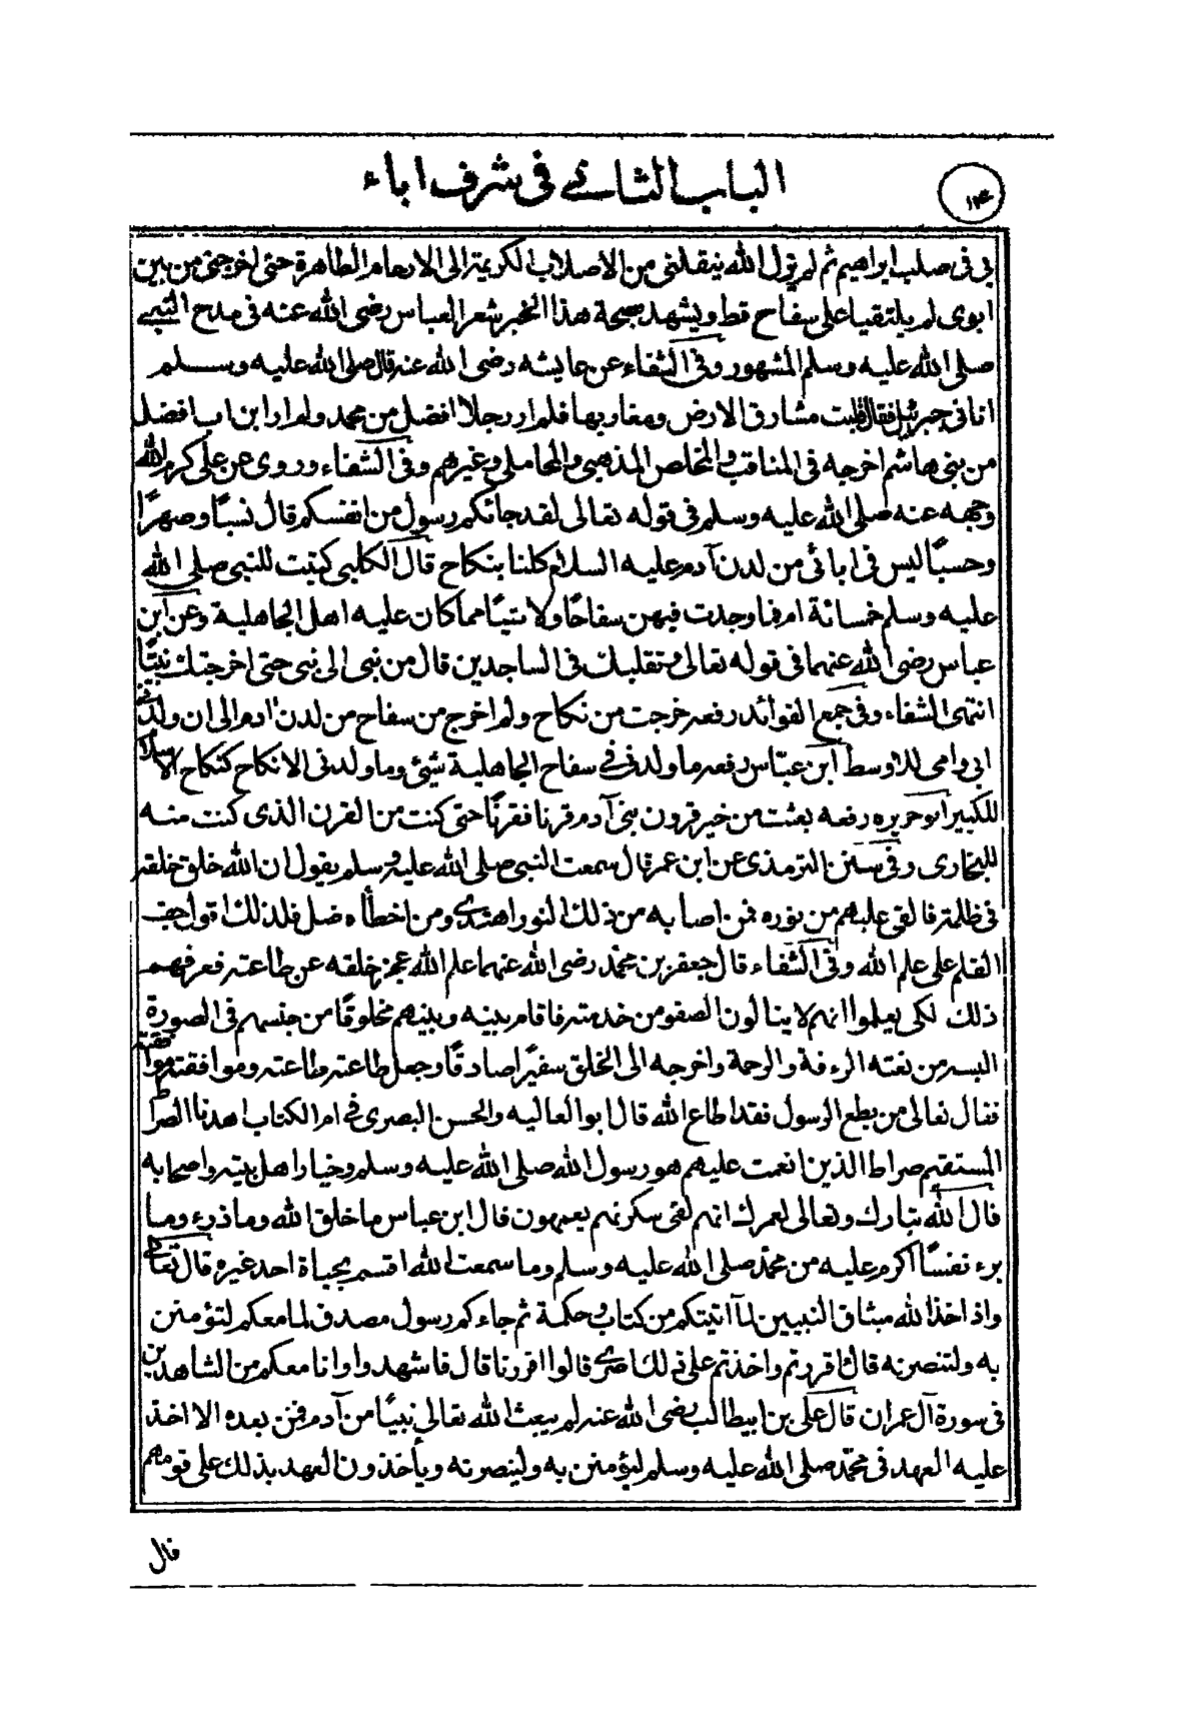 الباب الثانى فى شرف اباء
بى فى صلب ابراهيم ثم لم يزل الله ينقلنى من الاصلاب الكريمة الى الارحام الطاهرة حتى اخرجنى من بين
ابوى لم يلتقيا على سفاح قط ويشهد بصحة هذا الخبر شعر العباس رضى الله عنه فى مدح النبى
صلى الله عليه وسلم المشهور وفى الشفاء عن عايشه رضى الله عنه قال صلى الله عليه وسلم
اتانى جبرئيل فقال قلبت مشارق الارض ومغاربها فلم ار رجلا افضل من محمد ولم ار ابن اب افضل
من بنى هاشم اخرجه فى المناقب والمخلص المذهبى والمحاملى وغيرهم وفى الشفاء وروى عن على كرم الله
وجهه عنه صلى الله عليه وسلم فى قوله تعالى لقد جائكم رسول من انفسكم قال نسبًا وصهرًا
وحسبًا ليس فى ابائى من لدن آدم عليه السلام كلنا بنكاح قال الكلبى كتبت للنبى صلى الله
عليه وسلم خمسائة ام فما وجدت فيهن سفاحًا ولا شيئًا مما كان عليه اهل الجاهلية وعن ابن
عباس رضى الله عنهما فى قوله تعالى وتقلبك فى الساجدين قال من نبى الى نبى حتى اخرجتك نبيًا
انتهى الشفاء وفى جمع الفوائد رفعه خرجت من نكاح ولم اخرج من سفاح من لدن ادم الى ان ولدنى
ابى وامى للاوسط ابن عباس رفعه ما ولدنى فى سفاح الجاهلية شيئ وما ولدنى الا نكاح كنكاح الاسلام
للكبير ابو هريره رفعه بعثت من خير قرون بنى آدم قرنا فقرنًا حتى كنت من القرن الذى كنت منه
للبخارى وفى سنن الترمذى عن ابن عمر قال سمعت النبى صلى الله عليه وسلم يقول ان الله خلق خلقه
فى ظلمة فالقى عليهم من نوره فمن اصابه من ذلك النور اهتدى ومن اخطأه ضل فلذلك اقول جف
القلم على علم الله وفى الشفاء قال جعفر بن محمد رضى الله عنهما علم الله عجز خلقه عن طاعته فعرفهم
ذلك لكى يعلموا انهم لا ينالون الصفو من خدمته فاقام بينه وبينهم مخلوقًا من جنسهم فى الصورة
البسه من نعته الرءفة والرحمة واخرجه الى الخلق سفيرًا صادقًا وجعل طاعته طاعته وموافقته موافقته
فقال تعالى من يطع الرسول فقد اطاع الله قال ابو العاليه والحسن البصرى فى ام الكتاب اهدنا الصراط
المستقيم صراط الذين انعمت عليهم هو رسول الله صلى الله عليه وسلم وخيار اهل بيته واصحابه
قال الله تبارك وتعالى لعمرك انهم لفى سكرتهم يعمهون قال ابن عباس ما خلق الله وما ذرء وما
برء نفسًا اكرم عليه من محمد صلى الله عليه وسلم وما سمعت الله اقسم بحياة احد غيره قال تعالى
واذ اخذ الله ميثاق النبيين لمآ اتيتكم من كتاب وحكمة ثم جاءكم رسول مصدق لما معكم لتؤمنن
به ولتنصرنه قال ءاقررتم واخذتم على ذلك اصرى قالوا اقررنا قال فاشهدوا وانا معكم من الشاهدين
فى سورة آل عمران قال على بن ابيطالب رضى الله عنه لم يبعث الله تعالى نبيًا من آدم فمن بعده الا اخذ
عليه العهد فى محمد صلى الله عليه وسلم ليؤمنن به ولينصرنه ويأخذون العهد بذلك على قومهم
قال